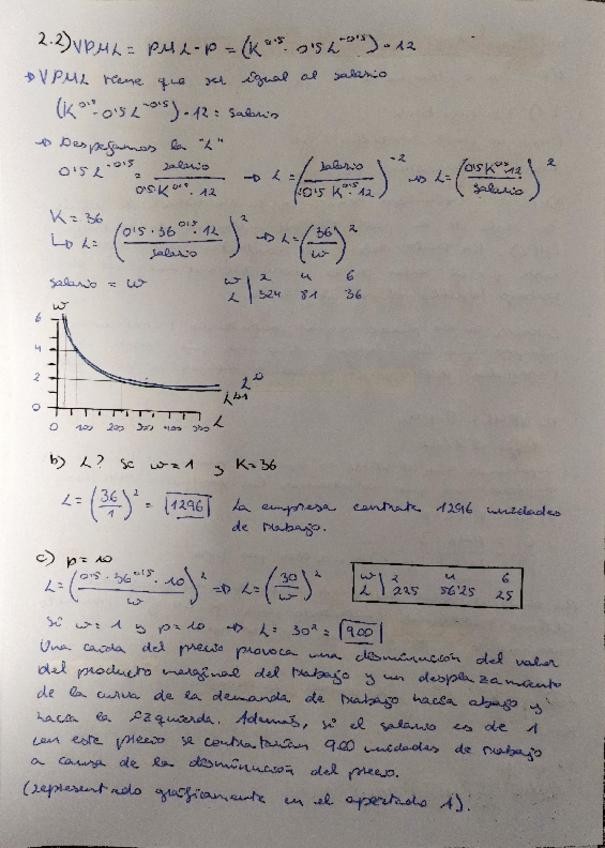 2.2) VPML = PML · P = (K^0'5 · 0'5 L^-0'5) · 12
→ VPML tiene que ser igual al salario
(K^0'5 · 0'5 L^-0'5) · 12 = salario
→ Despejamos la "L"
0'5 L^-0'5 = salario / 0'5 K^0'5 · 12 → L = (salario / 0'5 K^0'5 · 12)^-2 → L = (0'5 K^0'5 12 / salario)^2
K = 36
↳ L = (0'5 · 36^0'5 · 12 / salario)^2 → L = (36 / w)^2
salario = w
w | 2 4 6
L | 324 81 36
w
6
4
2
0
L^D
L^D1
0 100 200 300 400 500 L
b) L? Si w = 1 y K = 36
L = (36 / 1)^2 = 1296 La empresa contrata 1296 unidades
de trabajo.
c) p = 10
L = (0'5 · 36^0'5 · 10 / w)^2 ⇒ L = (30 / w)^2
w | 2 4 6
L | 225 56'25 25
Si w = 1 y p = 10 → L = 30² = 900
Una caída del precio provoca una disminución del valor
del producto marginal del trabajo y un desplazamiento
de la curva de la demanda de trabajo hacia abajo y
hacia la izquierda. Además, si el salario es de 1
con este precio se contratarían 900 unidades de trabajo
a causa de la disminución del precio.
(representado gráficamente en el apartado 1).